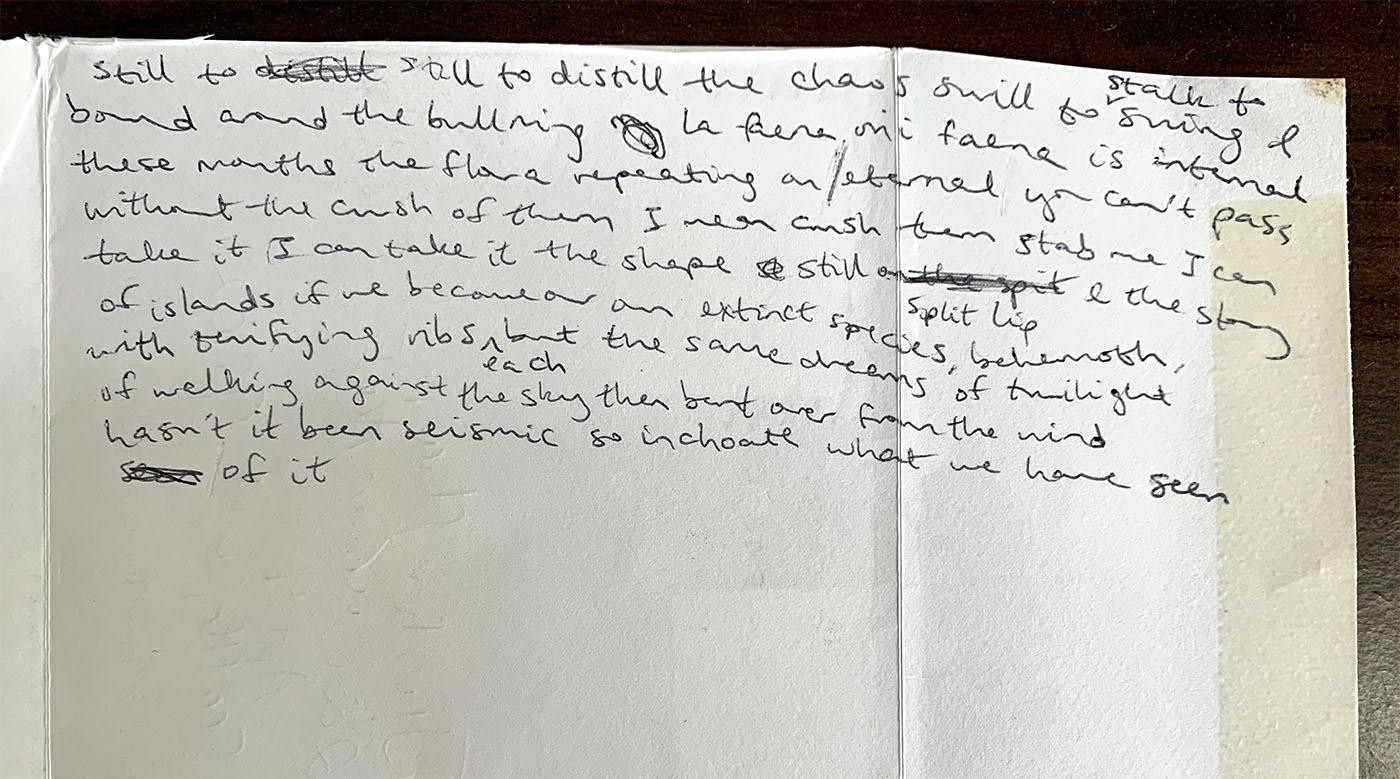 still to distill still to distill the chaos swill to stalk to swing &
bound around the bullring la faena mi faena is internal
these months the flora repeating an/eternal you can't pass
without the crush of them I mean crush them stab me I can
take it I can take it the shape still & the story
split lip
of islands if we become an extinct species, behemoth,
with terrifying ribs, but the same dreams of twilight
each
of walking against the sky then bent over from the wind
hasn't it been seismic so inchoate what we have seen
of it